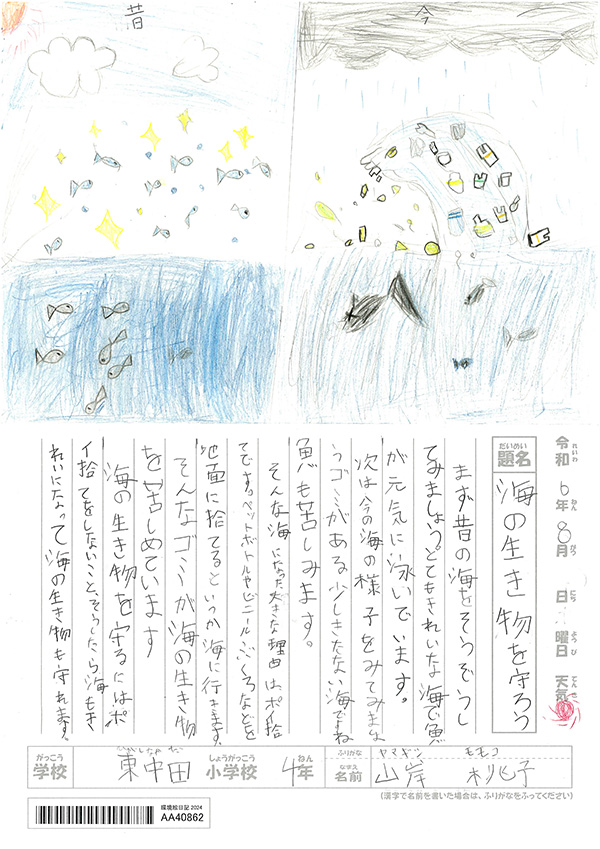 昔
今
令和 6年 8月 日 曜日 天気
れいわ ねん がつ にち ようび てんき
だいめい
題名
海の生き物を守ろう
まず昔の海をそうぞうし
てみましょう。とてもきれいな海で魚
が元気に泳いでいます。
次は今の海の様子をみてみましょ
うゴミがある少しきたない海ですね
魚も苦しみます。
そんな海になった大きな理由はポイ捨
てです。ペットボトルやビニールぶくろなどを
地面に捨てるといつか海に行きます。
そんなゴミが海の生き物
を苦しめています
海の生き物を守るにはポ
イ捨てをしないこと、そうしたら海もき
れいになって海の生き物も守れます。
がっこう
学校
東中田
しょうがっこう
小学校
4年
ねん
ふりがな
ヤマギシ モモコ
なまえ
名前
山岸
子
(漢字で名前を書いた場合は、ふりがなをふってください)
環境絵日記 2024
AA40862